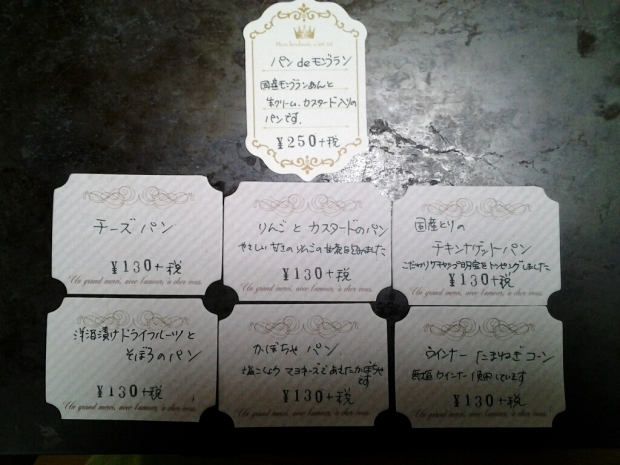 パン de モンブラン
国産モンブランあんと
生クリーム、カスタード入りの
パンです。
¥250+税
チーズパン
¥130+税
"Un grand merci, avec bonheur, à chez vous."
りんごとカスタードのパン
やさしい甘さのりんごの甘煮を包みました
¥130+税
"Un grand merci, avec bonheur, à chez vous."
国産とりの
チキンナゲットパン
こだわりケチャップをトッピングしました
¥130+税
洋酒漬けドライフルーツと
そぼろのパン
¥130+税
"Un grand merci, avec bonheur, à chez vous."
かぼちゃパン
塩こしょうマヨネーズであえたかぼちゃ
です
¥130+税
"Un grand merci, avec bonheur, à chez vous."
ウインナーたまねぎコーン
ウインナー使用しています
¥130+税